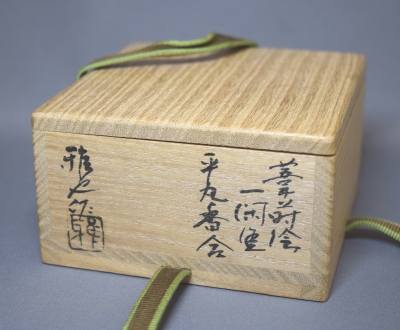 蒔絵
一閑塗
平丸香合
雅也作